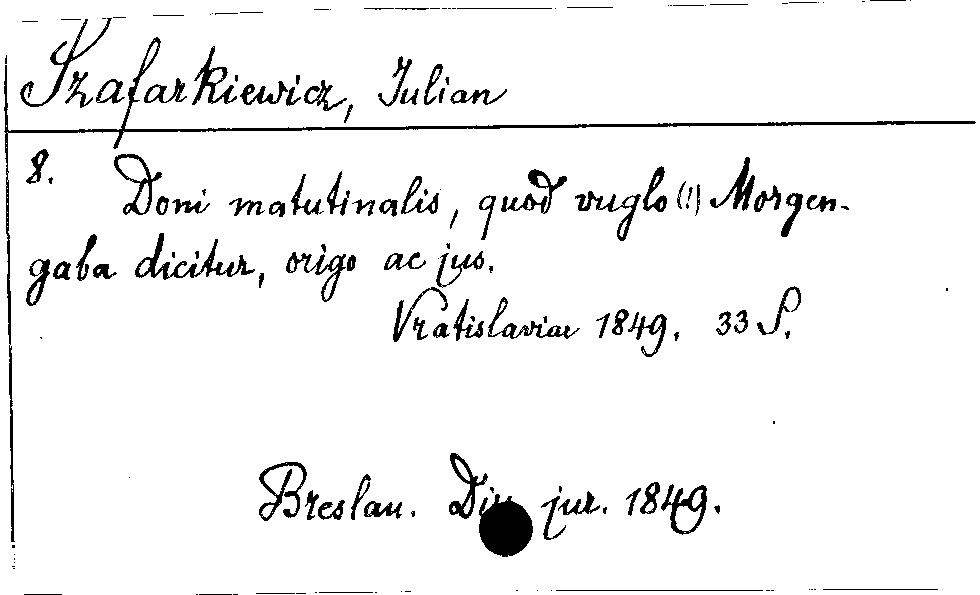 Szafarkiewicz, Julian
8. Doni matutinalis, quod vuglo (!) Morgen-
gaba dicitur, origo ac jus.
Vratislaviae 1849. 33 S.
Breslau. jur. 1849.